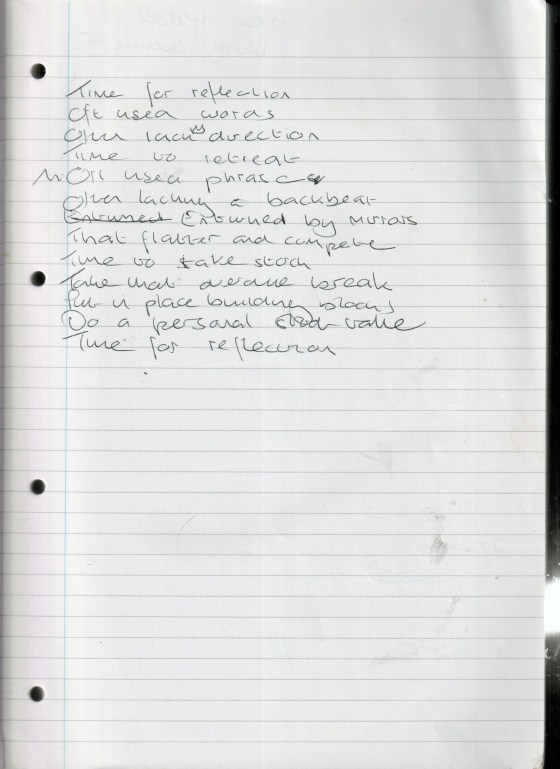 Time for reflection
Oft used words
Often lack direction
Time to retreat
Oft used phrase
Often lacking a backbeat
Entwined by mirrors
That flatter and compete
Time to take stock
Take that overdue break
Put in place building blocks
Do a personal value
Time for reflection